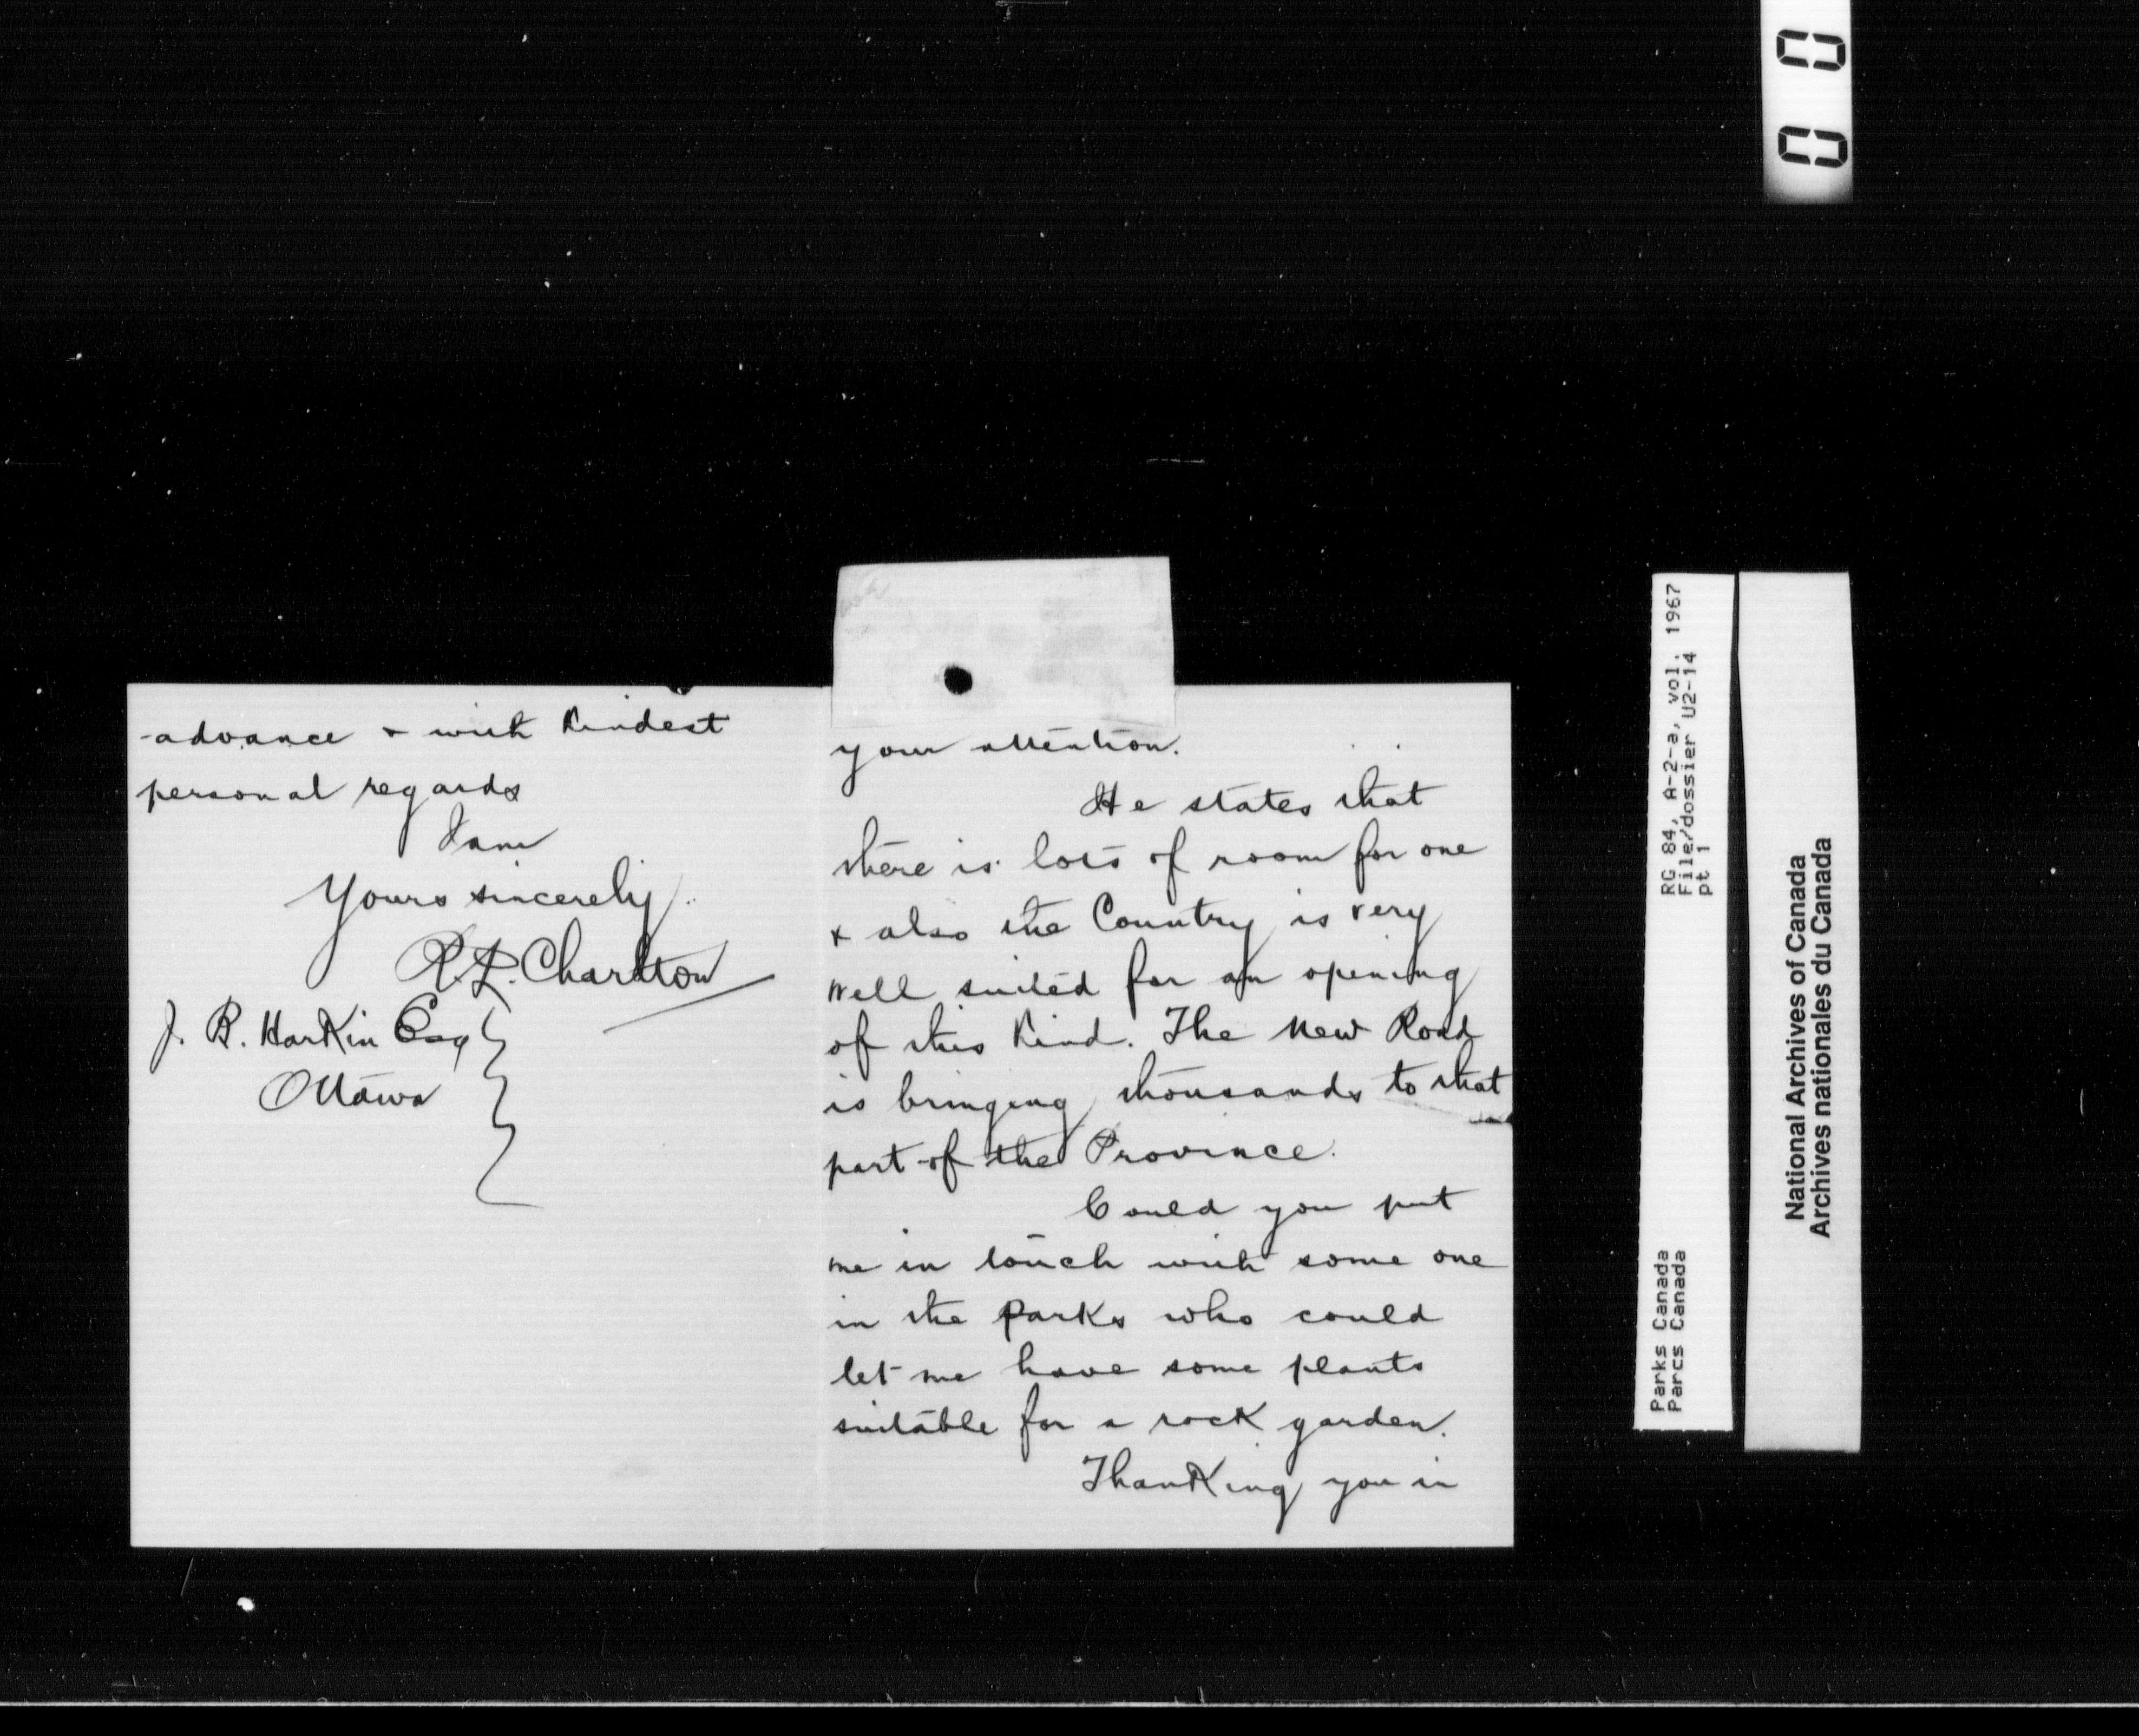 your attention.
He states that
there is lots of room for one
& also the Country is very
well suited for an opening
of this kind. The new Road
is bringing thousands to that
part of the Province.
Could you put
me in touch with some one
in the Parks who could
let me have some plants
suitable for a rock garden.
Thanking you in
advance & with kindest
personal regards
I am
Yours sincerely.
Charlton
J. B. Harkin Esq
Ottawa
RG 84, A-2-a, vol. 1967
File/dossier U2-14
pt 1
Parks Canada
Parcs Canada
National Archives of Canada
Archives nationales du Canada
0 0